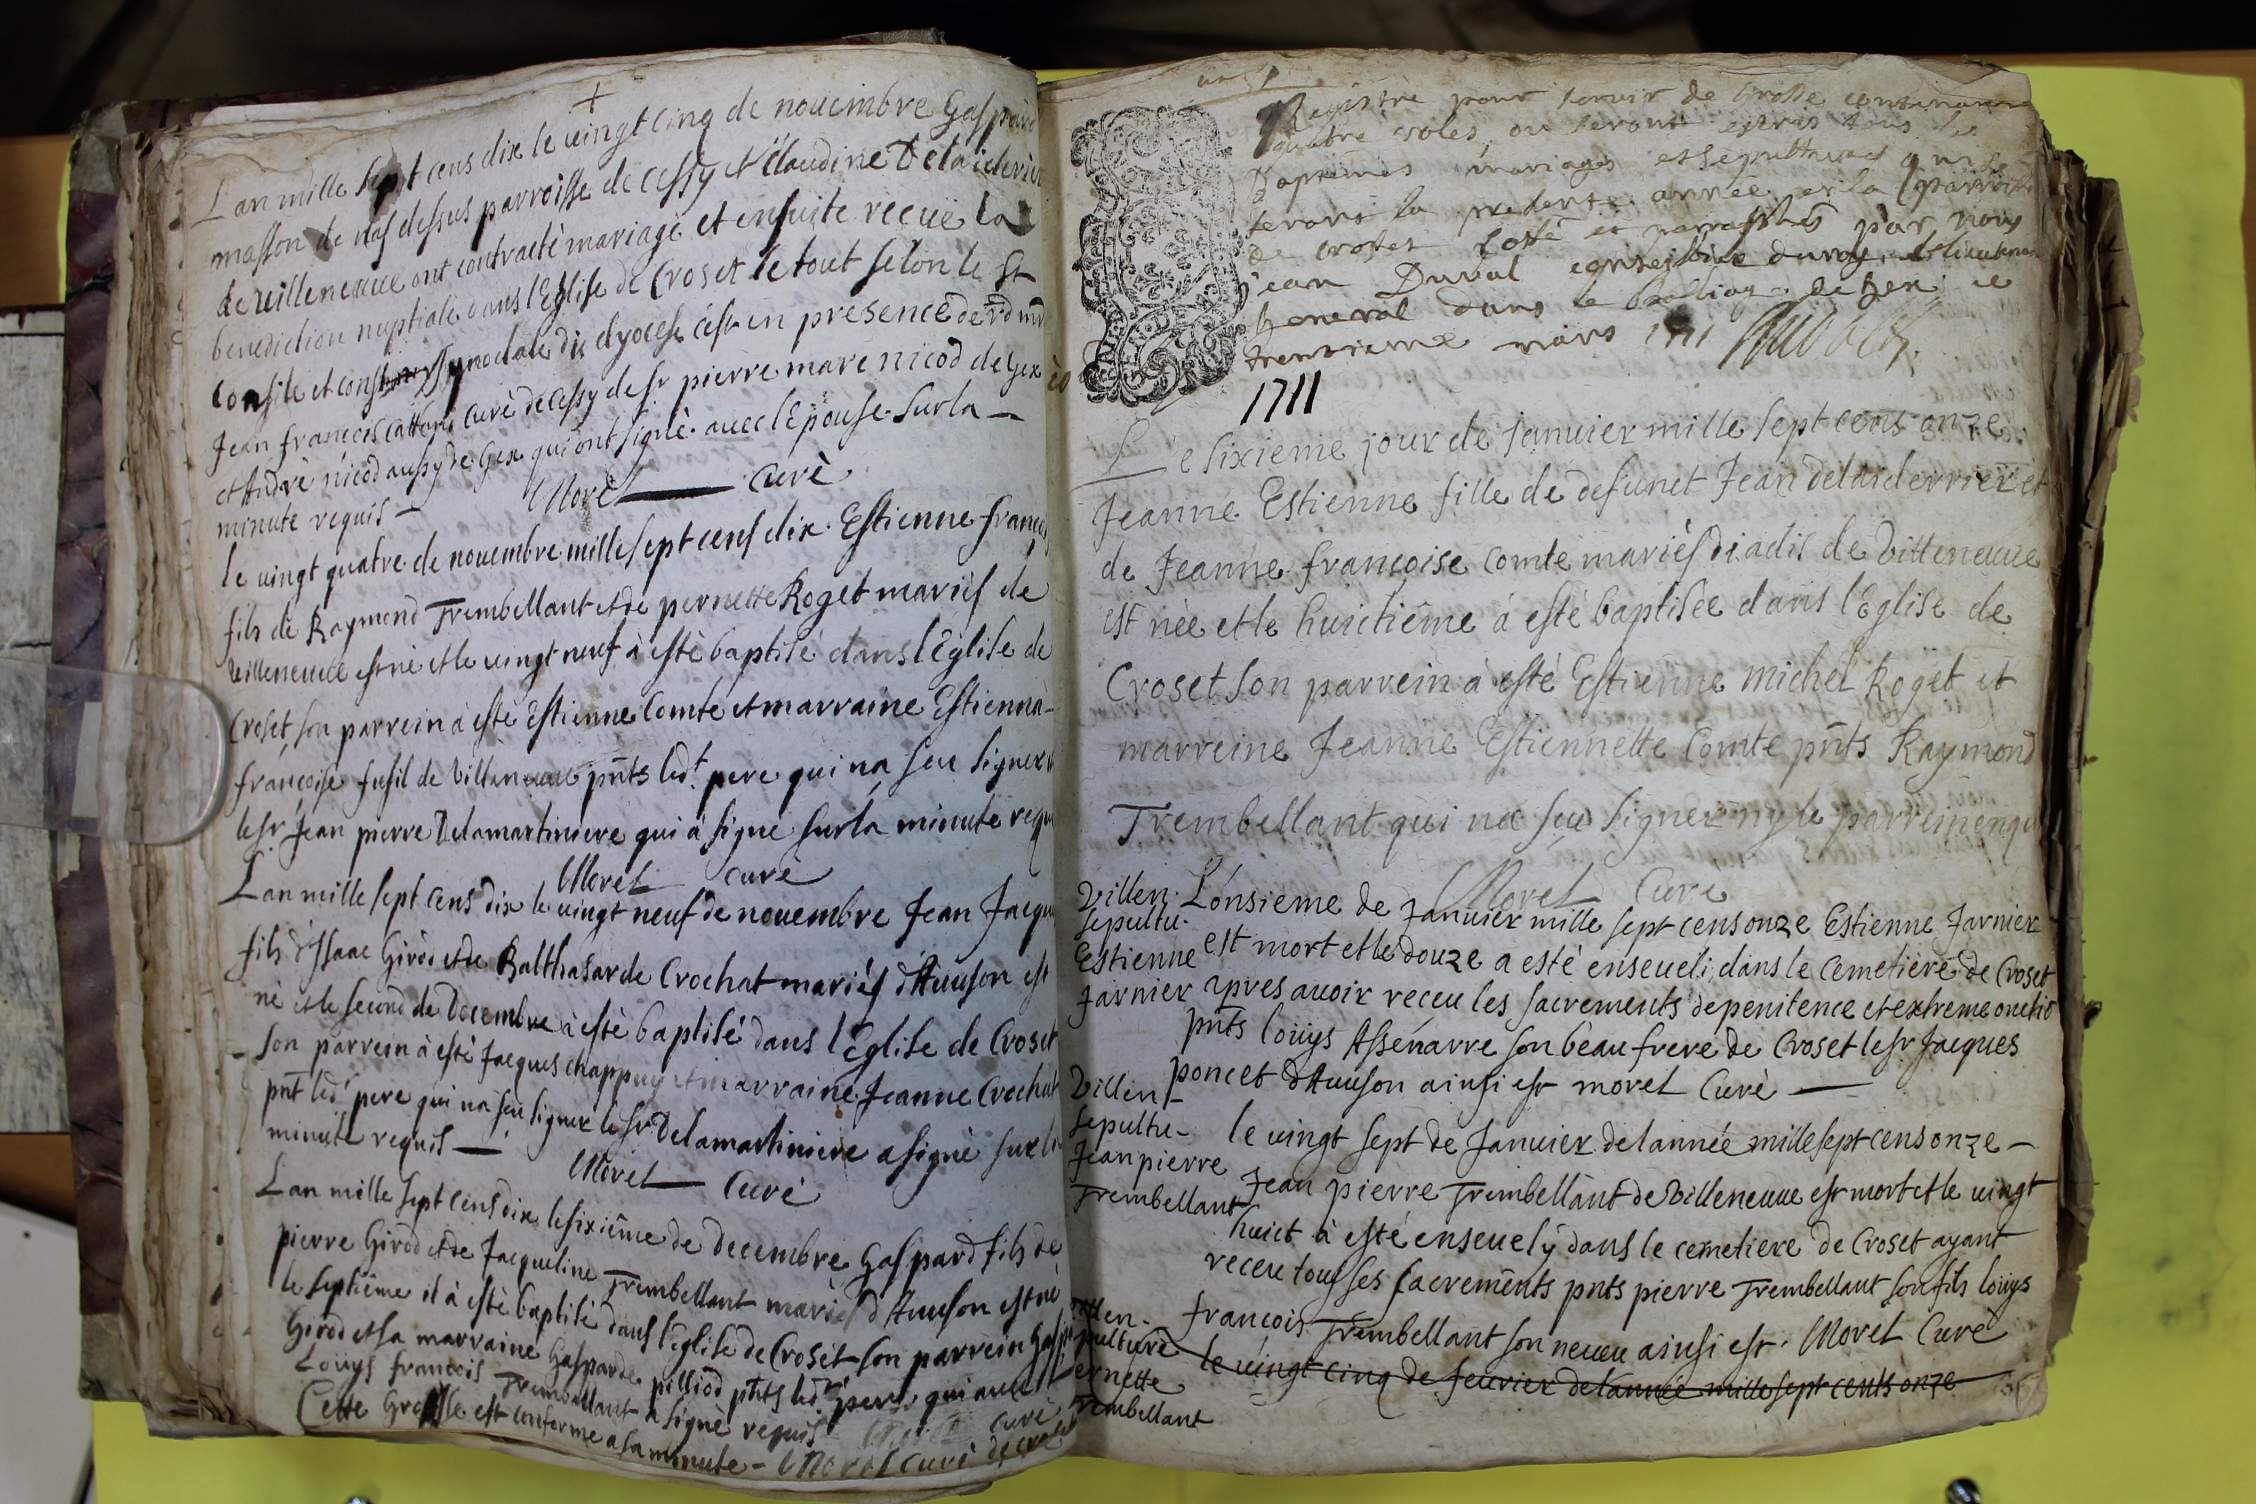 L'an mille sept cens dix le vingt cinq de nouembre Gaspard
masson de nas dessus parroisse de Cessy & Claudine Delaiderrier
de villeneuue ont contracté mariage et ensuite recuë la
benediction nuptiale dans l'Eglise de Croset le tout selon le st
Consile et synodale du dyocese c'est en presence de rd mre
Jean francois Cattan Curè de Cessy de sr pierre marc nicod de Gex
et Andrè nicod aussy de Gex qui ont signè auec l'Epouse sur la
minute requis —
Morel — Curè
le vingt quatre de nouembre mille sept cens dix Estienne francois
fils de Raymond Trembellant et de pernette Roget mariés de
villeneuue est né et le vingt neuf à estè baptisé dans l'Eglise de
Croset, son parrein à estè Estienne Comte et marraine Estienna-
francoise fusil de Villeneuue pnts led.t pere qui na seu signer
le sr Jean pierre Delamartiniere qui à signé sur la minute requis
Morel curè
L'an mille sept cens dix le vingt neuf de nouembre Jean Jacques
fils d'Isaac Girod et de Balthasarde Crochat mariés d'Auuson est
né et le second de Decembre à estè baptisé dans l'Eglise de Croset
son parrein à estè Jacques chappuy et marraine Jeanne Crochat
pnt led.t pere qui na seu signer le sr Delamartiniere a signè sur la
minute requis —
Morel — Curè
L'an mille sept cens dix le sixiême de decembre Gaspard fils de
pierre Girod et de Jacqueline Trembellant mariés d'Auuson est né
le septiême il à estè baptisé dans l'eglise de Croset son parrein Gaspard
Girod et sa marraine Gasparde pilliod pnts led.t pere qui auec
Louys francois Trembellant a signè requis Morel curè
Cette Grosse est conforme a sa minute — Morel curè de Croset
Registre pour seruir de Grosse contenant
quatre roles, ou seront escris tous les
Baptemes mariages et sepultures qui se
feront la presente année en la parroisse
de Croset Cotté et parraffés par nous
jean Duval conseillier du roy, & lieutenant
General dans le balliage de Gex ce
trentieme mars 1711
1711
Le sixieme jour de Januier mille sept cens onze
Jeanne Estienne fille de defunct Jean delaiderrier et
de Jeanne francoise Comte mariés jadis de Villeneuue
est née et le huictiême á esté baptisée dans l'Eglise de
Croset son parrein à esté Estienne michel Roget et
marreine Jeanne Estiennette Comte pnts Raymond
Trembellant qui na seu signer ny le parrein enquis
Morel Curè
Villen.
sepultu-
Estienne
Jarnier
L'onsieme de Januier mille sept cens onze Estienne Jarnier
est mort et le douze a esté enseueli dans le cemetiere de Croset
apres auoir receu les sacrements de penitence et extreme onctiõ
pnts louys Assénarre son beau frere de Croset le sr Jacques
poncet d'Auuson ainsi est morel Curè —
Villen-
sepultu-
Jean pierre
Trembellant
le vingt sept de Januier de l'année mille sept cens onze —
Jean pierre Trembellant de Villeneuue est mort et le vingt
huict à esté enseuelÿ dans le cemetiere de Croset ayant
receu tous ses sacrements pnts pierre Trembellant son fils louys
francois Trembellant son neueu ainsi est. Morel Curè
Villen-
sepulture
pernette
Trembellant
le vingt cinq de feurier de l'année mille sept cents onze